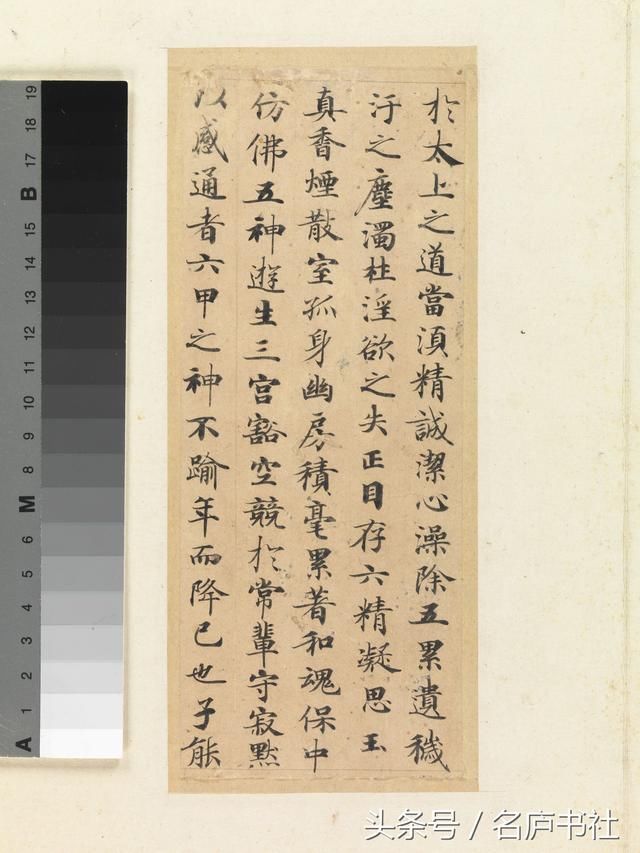 於太上之道當須精誠潔心澡除五累遺穢
汙之塵濁杜淫欲之失正目存六精凝思玉
真香煙散室孤身幽房積毫累著和魂保中
仿佛五神遊生三宮豁空競於常輩守寂默
以感通者六甲之神不踰年而降已也子能
19
18
17
B
16
15
14
13
12
11
10
9
8
7
M
6
5
4
3
2
1
A
头条号 / 名庐书社